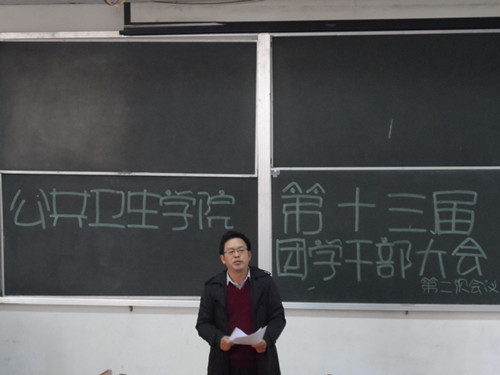 公共卫生学院
第十三届
团学干部大会
第二次会议